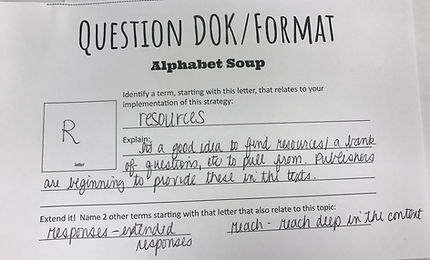 QUESTION DOK/FORMAT
Alphabet Soup
Identify a term, starting with this letter, that relates to your
implementation of this strategy:
resources
R
letter
Explain:
It's a good idea to find resources/ a bank
of questions, etc to pull from. Publishers
are beginning to provide these in the texts.
Extend it! Name 2 other terms starting with that letter that also relate to this topic:
responses - extended
responses
reach - reach deep in the content